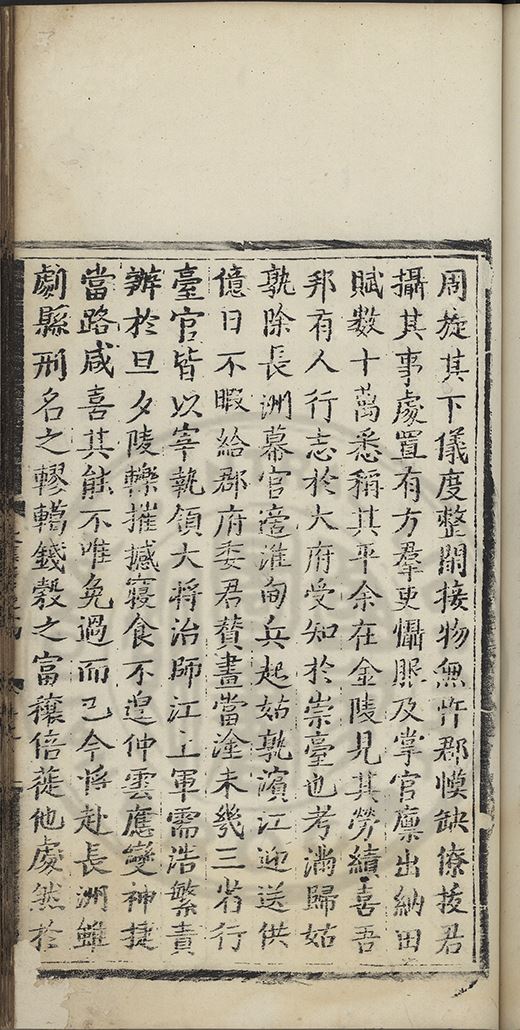 周旋其下儀度整閑接物無忤郡幙缺僚援君
攝其事處置有方羣吏懾服及掌官廪出納田
賦數十萬悉稱其平余在金陵見其勞績喜吾
邦有人行志於大府受知於崇臺也考滿歸姑
孰除長洲幕官適淮甸兵起姑孰濱江迎送供
億日不暇給郡府委君賛畫當塗未幾三省行
臺官皆以宰執領大將治師江上軍需浩繁責
辦於旦夕陵轢摧撼寢食不遑仲雲應變神捷
當路咸喜其能不唯免過而已今將赴長洲雖
劇縣刑名之轇轕錢穀之富穰倍蓰他處然於